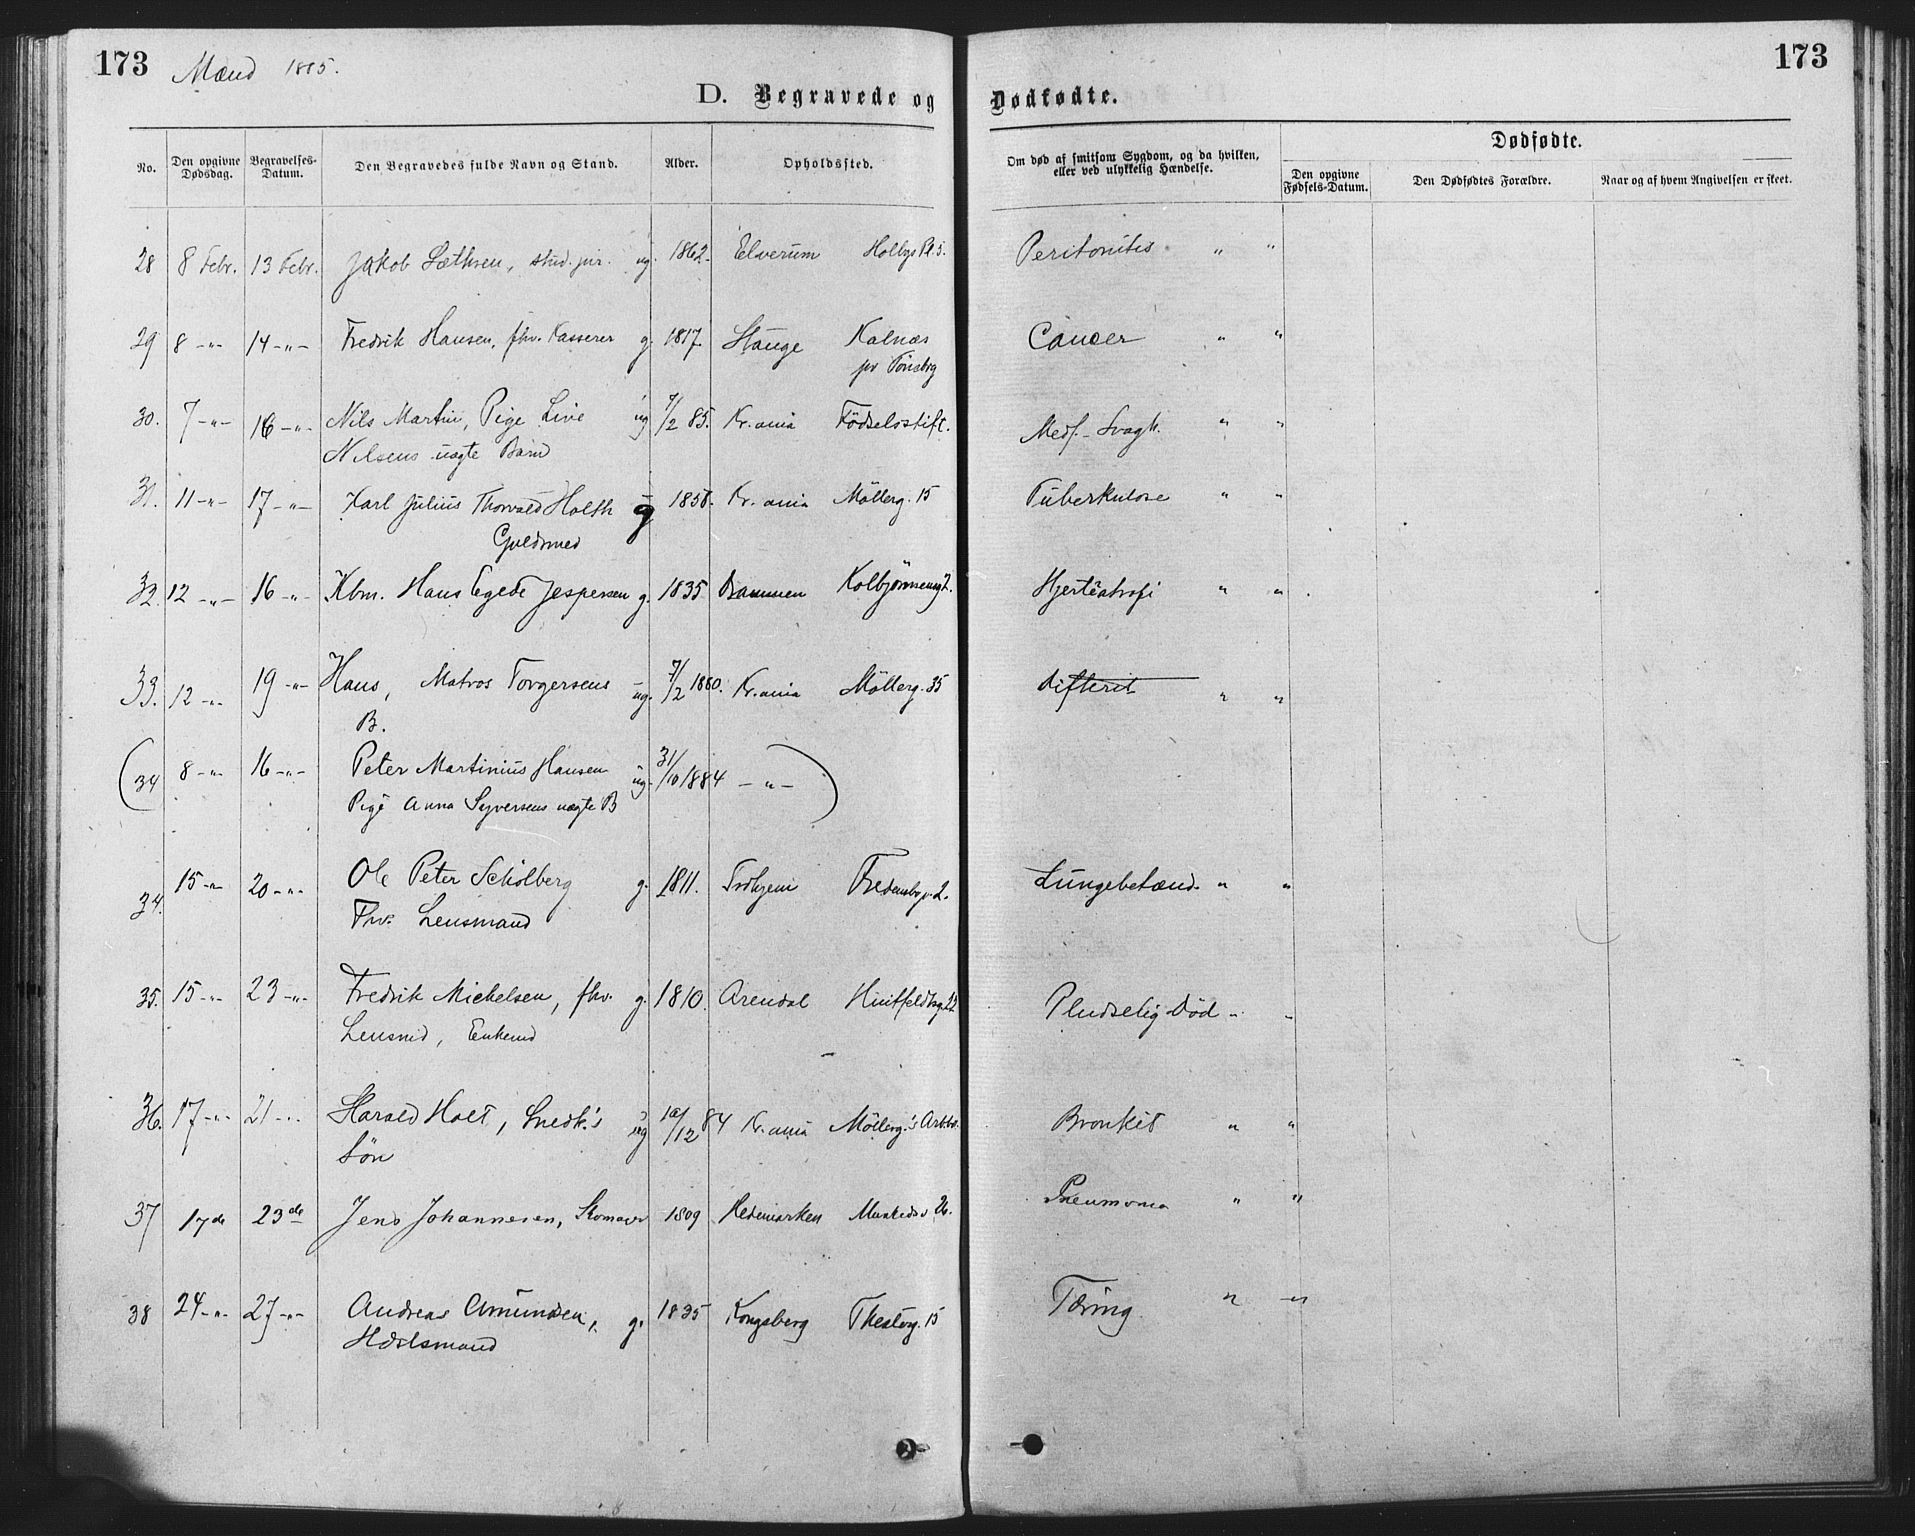 173 Mænd 1885. 173
D. Begravede og Dødfødte.
No. Den opgivne Dødsdag. Begravelses-Datum. Den Begravedes fulde Navn og Stand. Alder. Opholdssted. Om død af smitsom Sygdom, og da hvilken, eller ved ulykkelig Hændelse. Dødfødte.
Den opgivne Fødsels-Datum. Den Dødfødtes Forældre. Naar og af hvem Angivelsen er skeet.
28 8 Febr. 13 Febr. Jakob Sæthren, stud. jur. ug. 1862. Elverum Holbys Pl. 5. Peritonites " "
29 8 -"- 14 -"- Fredrik Hansen, fhv. Kasserer g. 1817 Stange Kalnæs Cancer " "
pr Tönsbrg
30. 7 -"- 16 -"- Nils Martin, Pige Live ug 7/2 85. Kr.ania Födselsstift. Medf. Svagh. " "
Nilsens uægte Barn
31. 11 -"- 17 -"- Karl Julius Thorvald Holth g 1858. Kr.ania Möllerg. 15 Tuberkulose " "
Guldsmed
32. 12 -"- 16 -"- Kbm. Hans Egede Jespersen g. 1835 Drammen Kolbjörnsensg 2. Hjerteatrofi " "
33. 12 -"- 19 -"- Hans, Matros Torgersens ug. 7/2 1880. Kr.ania Möllerg. 35 difterit " "
B.
(34 8 -"- 16 -"- Peter Martinius Hansen ug. 31/10 1884 -"- )
Pige Anna Syversens uægte B
34. 15 -"- 20 -"- Ole Peter Schölberg g. 1811. Trdhjem Fredensbgv. 2. Lungebetænd. " "
Fhv. Lensmand
35. 15 -"- 23 -"- Fredrik Michelsen, fhv. g. 1810. Arendal Huitfeldtsg. 22 Pludselig Död " "
Lensmd, Enkemd
36. 17 -"- 21 -"- Harald Holt, Snedk.'s ug 10/12 84 Kr.ania Möllerg.'s Arb.bo. Bronkit " "
Sön
37 17de 23de Jens Johannesen, Skomager 1809 Hedemarken Munkedsv 26. Pneumonia " "
38 24 -"- 27 -"- Andreas Amundsen, g. 1835 Kongsberg Thestevg. 15 Tæring " "
Hdslsmand